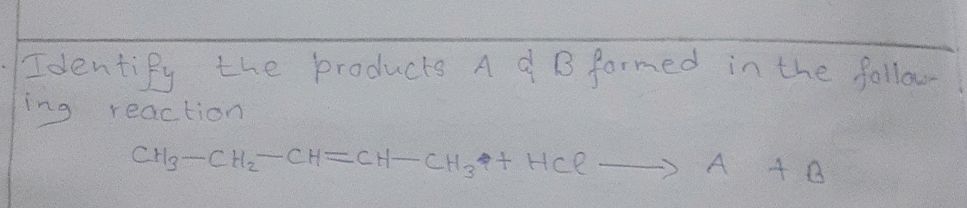 Identify the products A & B formed in the follow-
ing reaction
CH₃—CH₂—CH=CH—CH₃ + HCl ⟶ A + B